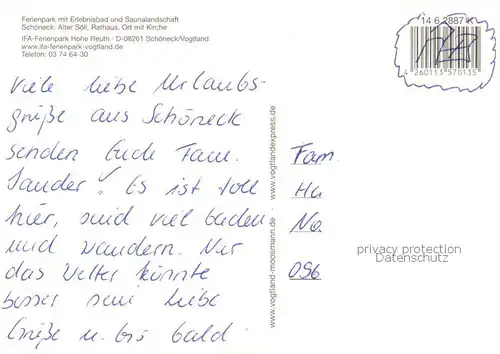 Ferienpark mit Erlebnisbad und Saunalandschaft
Schöneck: Alter Söll, Rathaus, Ort mit Kirche
IFA-Ferienpark Hohe Reuth · D-08261 Schöneck/Vogtland
www.ifa-ferienpark-vogtland.de
Telefon: 03 74 64-30
14 6 2887 K
4 260113 570135
Viele liebe Urlaubs-
grüße aus Schöneck
senden Euch Fam.
Sander! Es ist toll
hier, sind viel baden
und wandern. Nur
das Wetter könnte
besser sein. Liebe
Grüße u. bis bald.
www.vogtlandexpress.de
www.vogtland-moosmann.de
Fam.
Ha
No.
056
privacy protection
Datenschutz